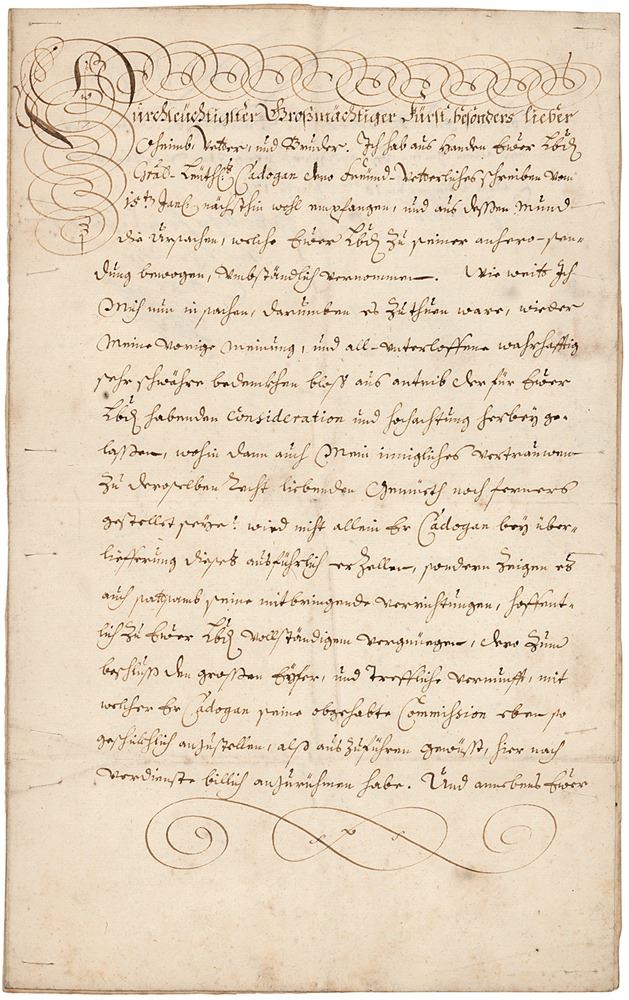 Durchleüchtigster Großmächtiger Fürst, besonders lieber
Oheimb, Vetter, und Brueder. Ich hab aus Handen Ewer Lbd
Gral-Leuth: Cadogan dero Freünd-Vetterliches schreiben vom
15ten Jan: nächsthin wohl empfangen, und aus dessen Mund
die Ursachen, welche Ewer Lbd zu seiner anhero-sen-
dung bewogen, umbständlich vernommen. Wie weitt Ich
Mich nun in sachen, darumben es zuthuen ware, wieder
Meine vorige Meinung, und all-unterloffene wahrhafftig
sehr schwähre bedenkhen bloß aus antrib der für Ewer
Lbd habenden consideration und hochachtung herbey ge-
lassen, wohin dann auch Mein innigliches vertrauwen
zu deroselben Recht liebenden Gemüeth noch ferners
gestellet seye? wird nicht allein Er Cadogan bey über-
liefferung dieses ausführlich erzellen, sondern zeigen es
auch sattsamb seine mitbringende verrichtungen, hoffent-
lich zu Ewer Lbd vollständigem vergnüegen, dero zum
beschluß den großen Eyfer, und treffliche vernunfft, mit
welcher Er Cadogan seine obgehabte Commission eben so
geschicklich anzustellen, alß auszuführen gewüßt, hier nach
verdienste billich anzurühmen habe. Und annebens Ewer